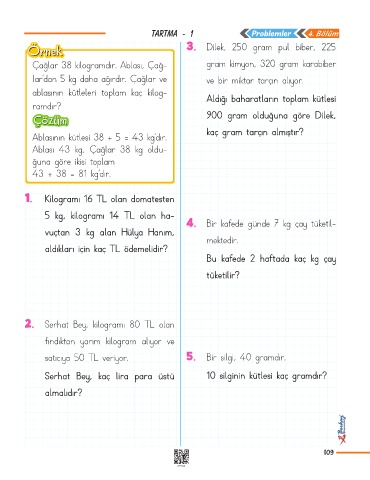 TARTMA - 1
Problemler
4. Bölüm
Örnek
Çağlar 38 kilogramdır. Ablası, Çağ-
lar'dan 5 kg daha ağırdır. Çağlar ve
ablasının kütleleri toplam kaç kilog-
ramdır?
Çözüm
Ablasının kütlesi 38 + 5 = 43 kg'dır.
Ablası 43 kg, Çağlar 38 kg oldu-
ğuna göre ikisi toplam
43 + 38 = 81 kg'dır.
1. Kilogramı 16 TL olan domatesten
5 kg, kilogramı 14 TL olan ha-
vuçtan 3 kg alan Hülya Hanım,
aldıkları için kaç TL ödemelidir?
2. Serhat Bey, kilogramı 80 TL olan
fındıktan yarım kilogram alıyor ve
satıcıya 50 TL veriyor.
Serhat Bey, kaç lira para üstü
almalıdır?
3. Dilek, 250 gram pul biber, 225
gram kimyon, 320 gram karabiber
ve bir miktar tarçın alıyor.
Aldığı baharatların toplam kütlesi
900 gram olduğuna göre Dilek,
kaç gram tarçın almıştır?
4. Bir kafede günde 7 kg çay tüketil-
mektedir.
Bu kafede 2 haftada kaç kg çay
tüketilir?
5. Bir silgi, 40 gramdır.
10 silginin kütlesi kaç gramdır?
109